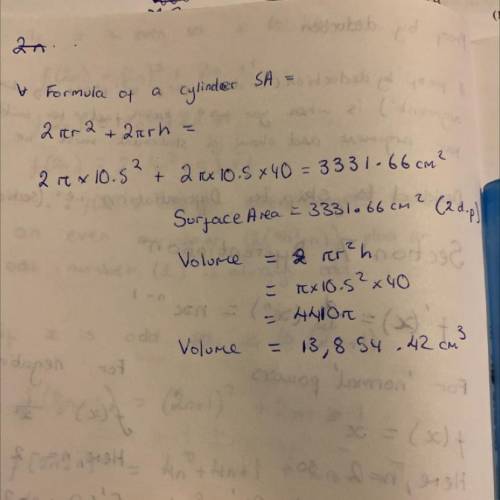 2π
∀ Formula of a cylinder SA =
2πr² + 2πrh =
2π×10.5² + 2π×10.5×40 = 3331.66 cm²
Surface Area = 3331.66 cm² (2d.p)
Volume = 2 πr²h
= π×10.5²×40
= 4410π
Volume = 13,854.42 cm³